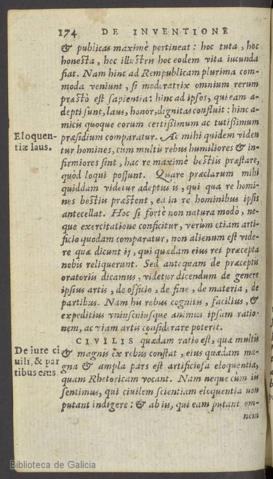 174 DE INVENTIONE
& publicas maximè pertineat: hoc tuta, hoc
honesta, hoc illustris hoc eodem vita iucunda
fiat. Nam hinc ad Rempublicam plurima com-
moda veniunt, si moderatrix omnium rerum
præstò est sapientia: hinc ad ipsos, qui eam a-
depti sunt, laus, honor, dignitas confluit: hinc a-
micis quoque eorum certissimum ac tutissimum
Eloquen-
tiæ laus.
præsidium comparatur. Ac mihi quidem viden
tur homines, cum multis rebus humiliores & in-
firmiores sint, hac re maximè bestiis præstare,
quòd loqui possunt. Quare præclarum mihi
quiddam videtur adeptus is, qui qua re homi-
nes bestiis præstent, ea in re hominibus ipsis
antecellat. Hoc si fortè non natura modo, ne-
que exercitatione conficitur, verum etiam arti-
ficio quodam comparatur, non alienum est vide-
re quæ dicunt ij, qui quædam eius rei præcepta
nobis reliquerunt. Sed antequam de præceptis
oratoriis dicamus, videtur dicendum de genere
ipsius artis, de officio, de fine, de materia, de
partibus. Nam his rebus cognitis, facilius, &
expeditius vniuscuiusque animus ipsam ratio-
nem, ac viam artis considerare poterit.
De iure ci
uili, & par
tibus eius.
CIVILIS quædam ratio est, quæ multis
& magnis ex rebus constat, eius quædam ma-
gna & ampla pars est artificiosa eloquentia,
quam Rhetoricam vocant. Nam neque cum iis
sentimus, qui ciuilem scientiam eloquentia non
putant indigere: & ab iis, qui eam putant om-
nem
Biblioteca de Galicia